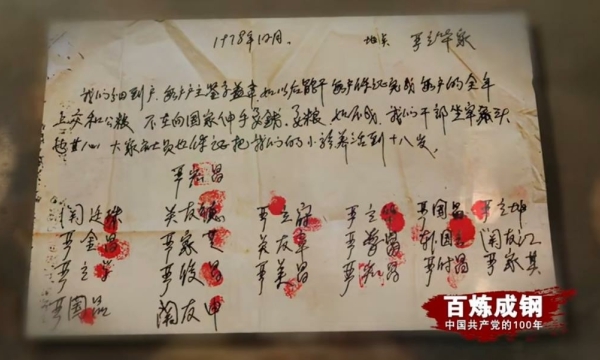 1978年12月. 地点 严立华家
我们分田到户 每户户主签字盖章 如以后能干 每户保证完成 每户的全年
上交和公粮 不在向国家伸手要钱要粮 如不成，我们干部坐牢杀头
也甘心 大家社员也保证把我们的小孩养活到十八岁。
严宏昌
关廷珠 关友德 严立富 严立华 严国昌 严立坤
严金昌 严家芝 关友章 严学昌 韩国云 关友江
严立学 严俊昌 严美昌 严宏昌 严付昌 严家其
严国品 关友申
百炼成钢
中国共产党的100年